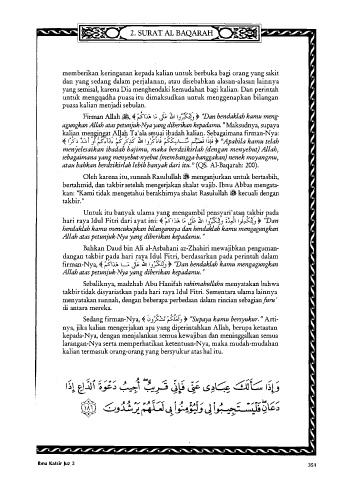 2. SURAT AL BAQARAH
memberikan keringanan kepada kalian untuk berbuka bagi orang yang sakit
dan yang sedang dalam perjalanan, atau disebabkan alasan-alasan lainnya
yang semisal, karena Dia menghendaki kemudahan bagi kalian. Dan perintah
untuk mengqadha puasa itu dimaksudkan untuk menggenapkan bilangan
puasa kalian menjadi sebulan.
Firman Allah ﷻ, ﴿ وَلِتُكَبِّرُوا اللَّهَ عَلَىٰ مَا هَدَاكُمْ ﴾ "Dan hendaklah kamu meng-
agungkan Allah atas petunjuk-Nya yang diberikan kepadamu." Maksudnya, supaya
kalian mengingat Allah Ta'ala seusai ibadah kalian. Sebagaimana firman-Nya:
﴿ فَإِذَا قَضَيْتُم مَّنَاسِكَكُمْ فَاذْكُرُوا اللَّهَ كَذِكْرِكُمْ آبَاءَكُمْ أَوْ أَشَدَّ ذِكْرًا ﴾ "Apabila kamu telah
menyelesaikan ibadah hajimu, maka berdzikirlah (dengan menyebut) Allah,
sebagaimana yang menyebut-nyebut (membangga-banggakan) nenek moyangmu,
atau bahkan berdzikirlah lebih banyak dari itu." (QS. Al-Baqarah: 200).
Oleh karena itu, sunnah Rasulullah ﷺ menganjurkan untuk bertasbih,
bertahmid, dan takbir setelah mengerjakan shalat wajib. Ibnu Abbas mengata-
kan: "Kami tidak mengetahui berakhirnya shalat Rasulullah ﷺ kecuali dengan
takbir."
Untuk itu banyak ulama yang mengambil pensyari'atan takbir pada
hari raya Idul Fitri dari ayat ini: ﴿ وَلِتُكْمِلُوا الْعِدَّةَ وَلِتُكَبِّرُوا اللَّهَ عَلَىٰ مَا هَدَاكُمْ ﴾ "Dan
hendaklah kamu mencukupkan bilangannya dan hendaklah kamu mengagungkan
Allah atas petunjuk-Nya yang diberikan kepadamu."
Bahkan Daud bin Ali al-Asbahani az-Zhahiri mewajibkan penguman-
dangan takbir pada hari raya Idul Fitri, berdasarkan pada perintah dalam
firman-Nya, ﴿ وَلِتُكَبِّرُوا اللَّهَ عَلَىٰ مَا هَدَاكُمْ ﴾ "Dan hendaklah kamu mengagungkan
Allah atas petunjuk-Nya yang diberikan kepadamu."
Sebaliknya, madzhab Abu Hanifah rahimahullahu menyatakan bahwa
takbir tidak disyariatkan pada hari raya Idul Fitri. Sementara ulama lainnya
menyatakan sunnah, dengan beberapa perbedaan dalam rincian sebagian furu'
di antara mereka.
Sedang firman-Nya, ﴿ وَلَعَلَّكُمْ تَشْكُرُونَ ﴾ "Supaya kamu bersyukur." Arti-
nya, jika kalian mengerjakan apa yang diperintahkan Allah, berupa ketaatan
kepada-Nya, dengan menjalankan semua kewajiban dan meninggalkan semua
larangan-Nya serta memperhatikan ketentuan-Nya, maka mudah-mudahan
kalian termasuk orang-orang yang bersyukur atas hal itu.
وَإِذَا سَأَلَكَ عِبَادِى عَنِّى فَإِنِّى قَرِيبٌ أُجِيبُ دَعْوَةَ ٱلدَّاعِ إِذَا
دَعَانِ فَلْيَسْتَجِيبُوا۟ لِى وَلْيُؤْمِنُوا۟ بِى لَعَلَّهُمْ يَرْشُدُونَ ١٨٦
Ibnu Katsir Juz 2
351